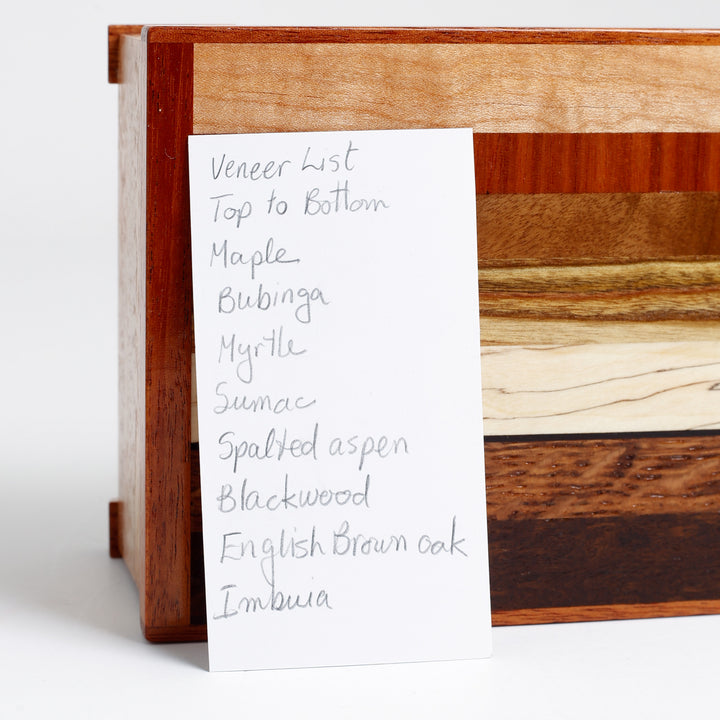 Veneer List
Top to Bottom
Maple
Bubinga
Myrtle
Sumac
Spalted aspen
Blackwood
English Brown oak
Imbuia